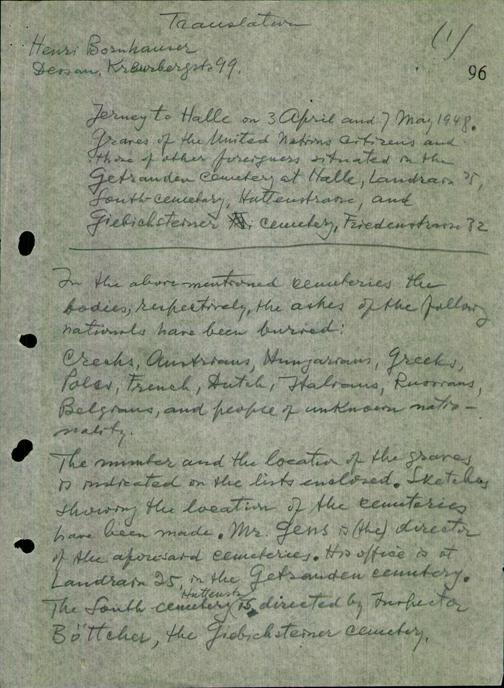 Translation
(1)
Henri Bornhauser
Dessau, Kreuzbergstr 99.
96
Jerney to Halle on 3 April and 7 May 1948.
graves of the United Nations citizens and
those of other foreigners situated in the
Getrauden cemetery at Halle, Landrain 25,
South-cemetery, Huttenstrasse, and
Giebichsteiner cemetery, Friedenstrasse 32
In the above-mentioned cemeteries the
bodies, respectively, the ashes of the following
nationals have been buried:
Czechs, Austrians, Hungarians, Greeks,
Poles, French, Dutch, Italians, Russians,
Belgians, and people of unknown natio-
nality.
The number and the location of the graves
is indicated on the lists enclosed. Sketches
showing the location of the cemeteries
have been made. Mr. Gens is (the) director
of the aforesaid cemeteries. His office is at
Landrain 25, in the Getrauden cemetery.
Huttenstr
The South cemetery is directed by Inspector
Böttcher, the Giebichsteiner cemetery,